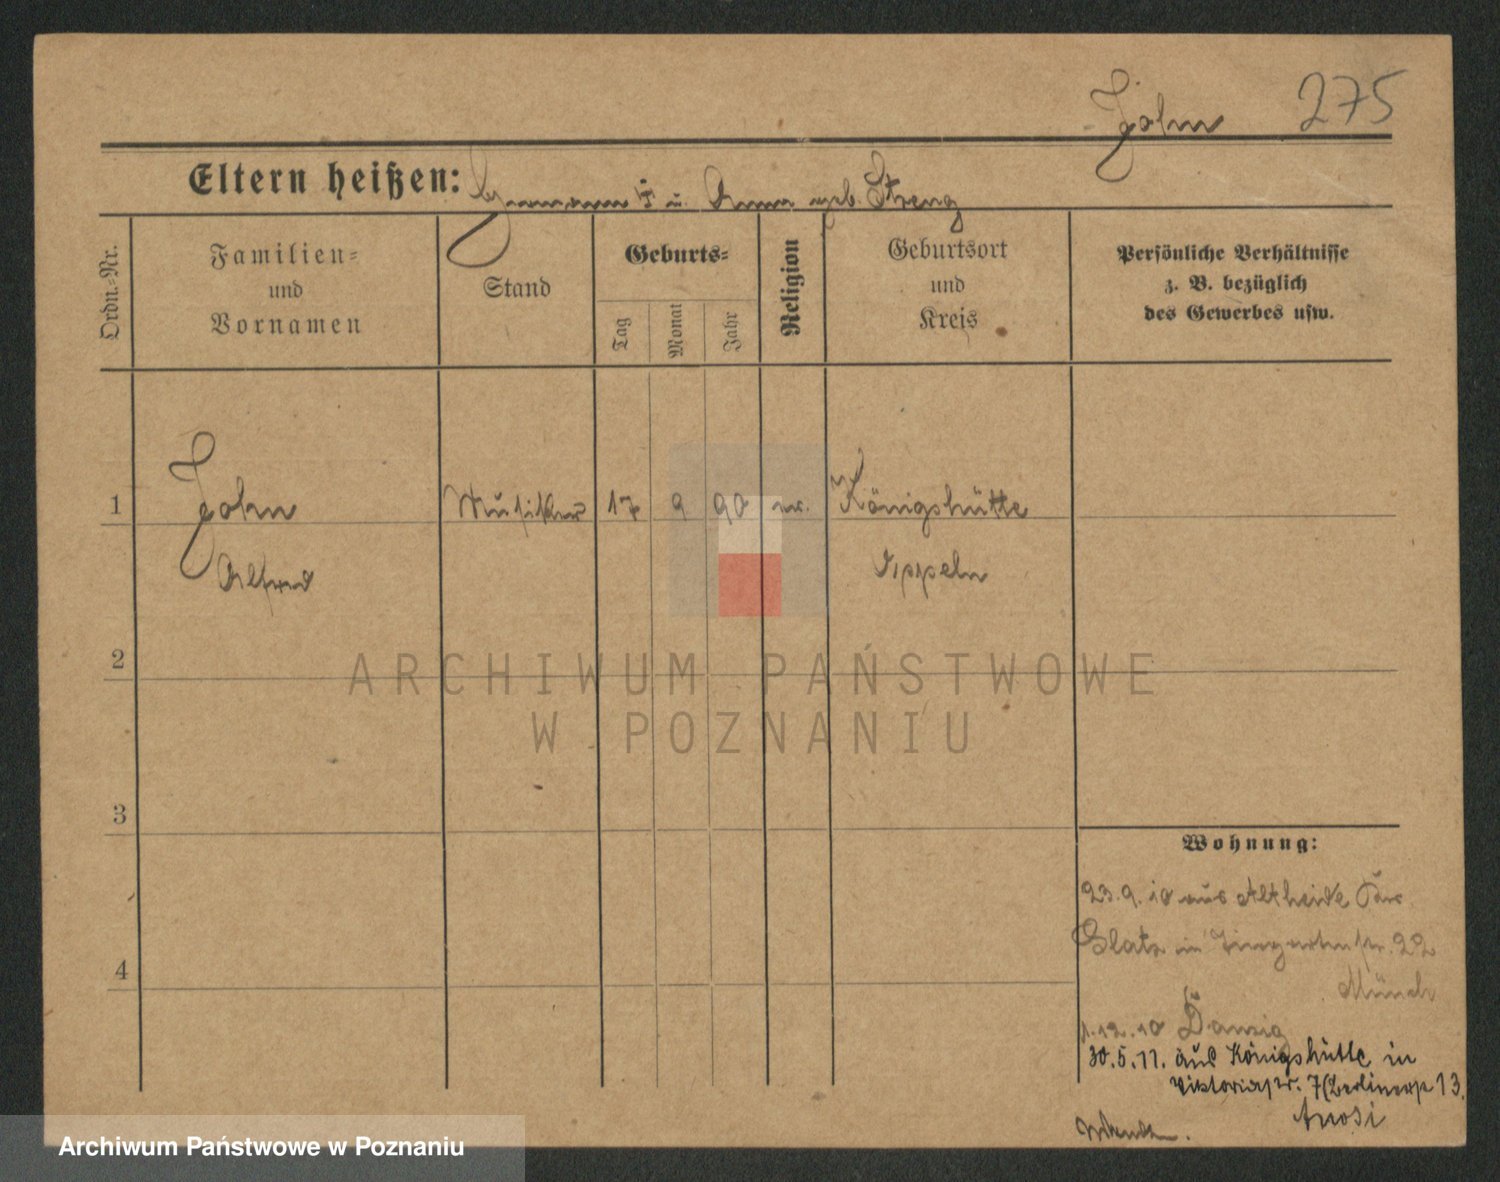 John 275
Eltern heißen: Hermann † u. Anna geb. Streng
Ordn.-Nr.
Familien-
und
Vornamen
Stand
Geburts-
Tag
Monat
Jahr
Religion
Geburtsort
und
Kreis
Persönliche Verhältnisse
z. B. bezüglich
des Gewerbes usw.
1 John Musiker 17 9 90 Königshütte
Alfred Oppeln
2
3
4
ARCHIWUM PAŃSTWOWE
W POZNANIU
Wohnung:
23.9.10 aus Altheide
Glatz in 22
Münch
1.12.10 Danzig
30.5.11. aus Königshütte in
Viktoriastr. 7 (Berlinerstr 13.
Archiwum Państwowe w Poznaniu